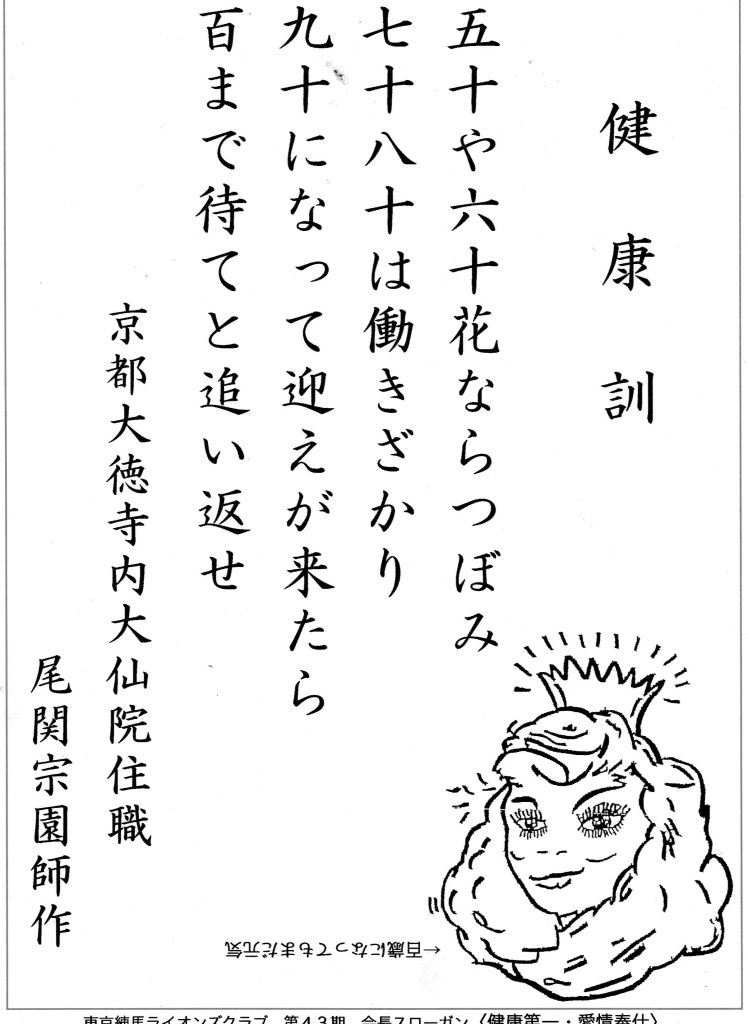 健康訓
五十や六十花ならつぼみ
七十八十は働きざかり
九十になって迎えが来たら
百まで待てと追い返せ
京都大徳寺内大仙院住職
尾関宗園師作
←百歳になってもまだ元気
東京練馬ライオンズクラブ 第43期 会長スローガン〈健康第一・愛情奉仕〉